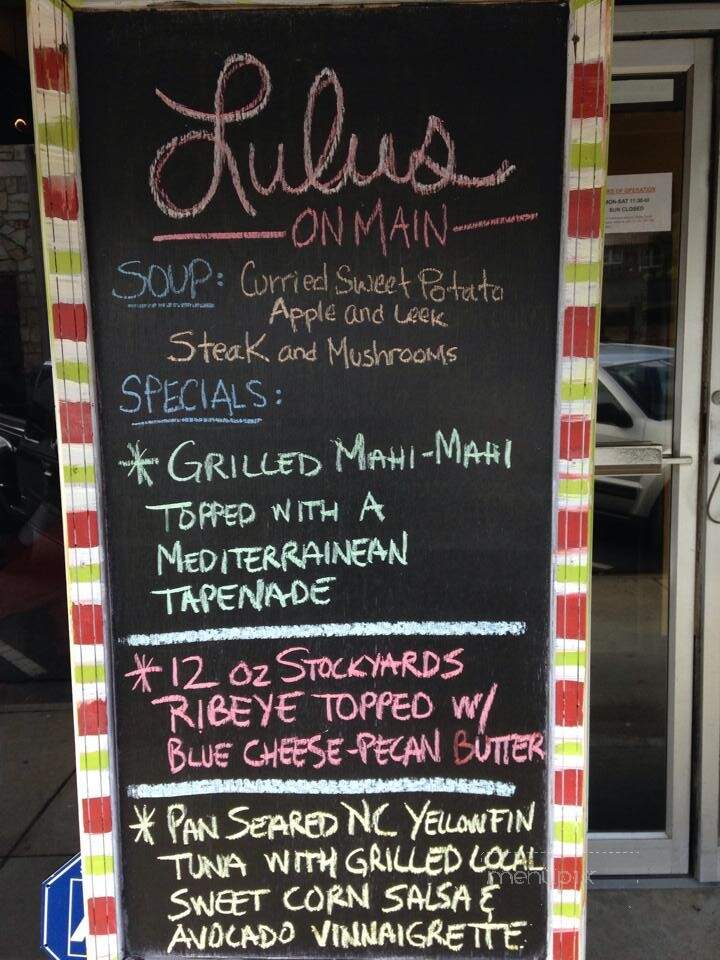 Lulus
ON MAIN
SOUP: Curried Sweet Potato
Apple and Leek
Steak and Mushrooms
SPECIALS:
* GRILLED MAHI-MAHI
TOPPED WITH A
MEDITERRAINEAN
TAPENADE
* 12 OZ STOCKYARDS
RIBEYE TOPPED W/
BLUE CHEESE-PECAN BUTTER
* PAN SEARED NC YELLOWFIN
TUNA WITH GRILLED LOCAL
SWEET CORN SALSA &
AVOCADO VINNAIGRETTE
OF OPERATION
MON-SAT
SUN CLOSED
menupix